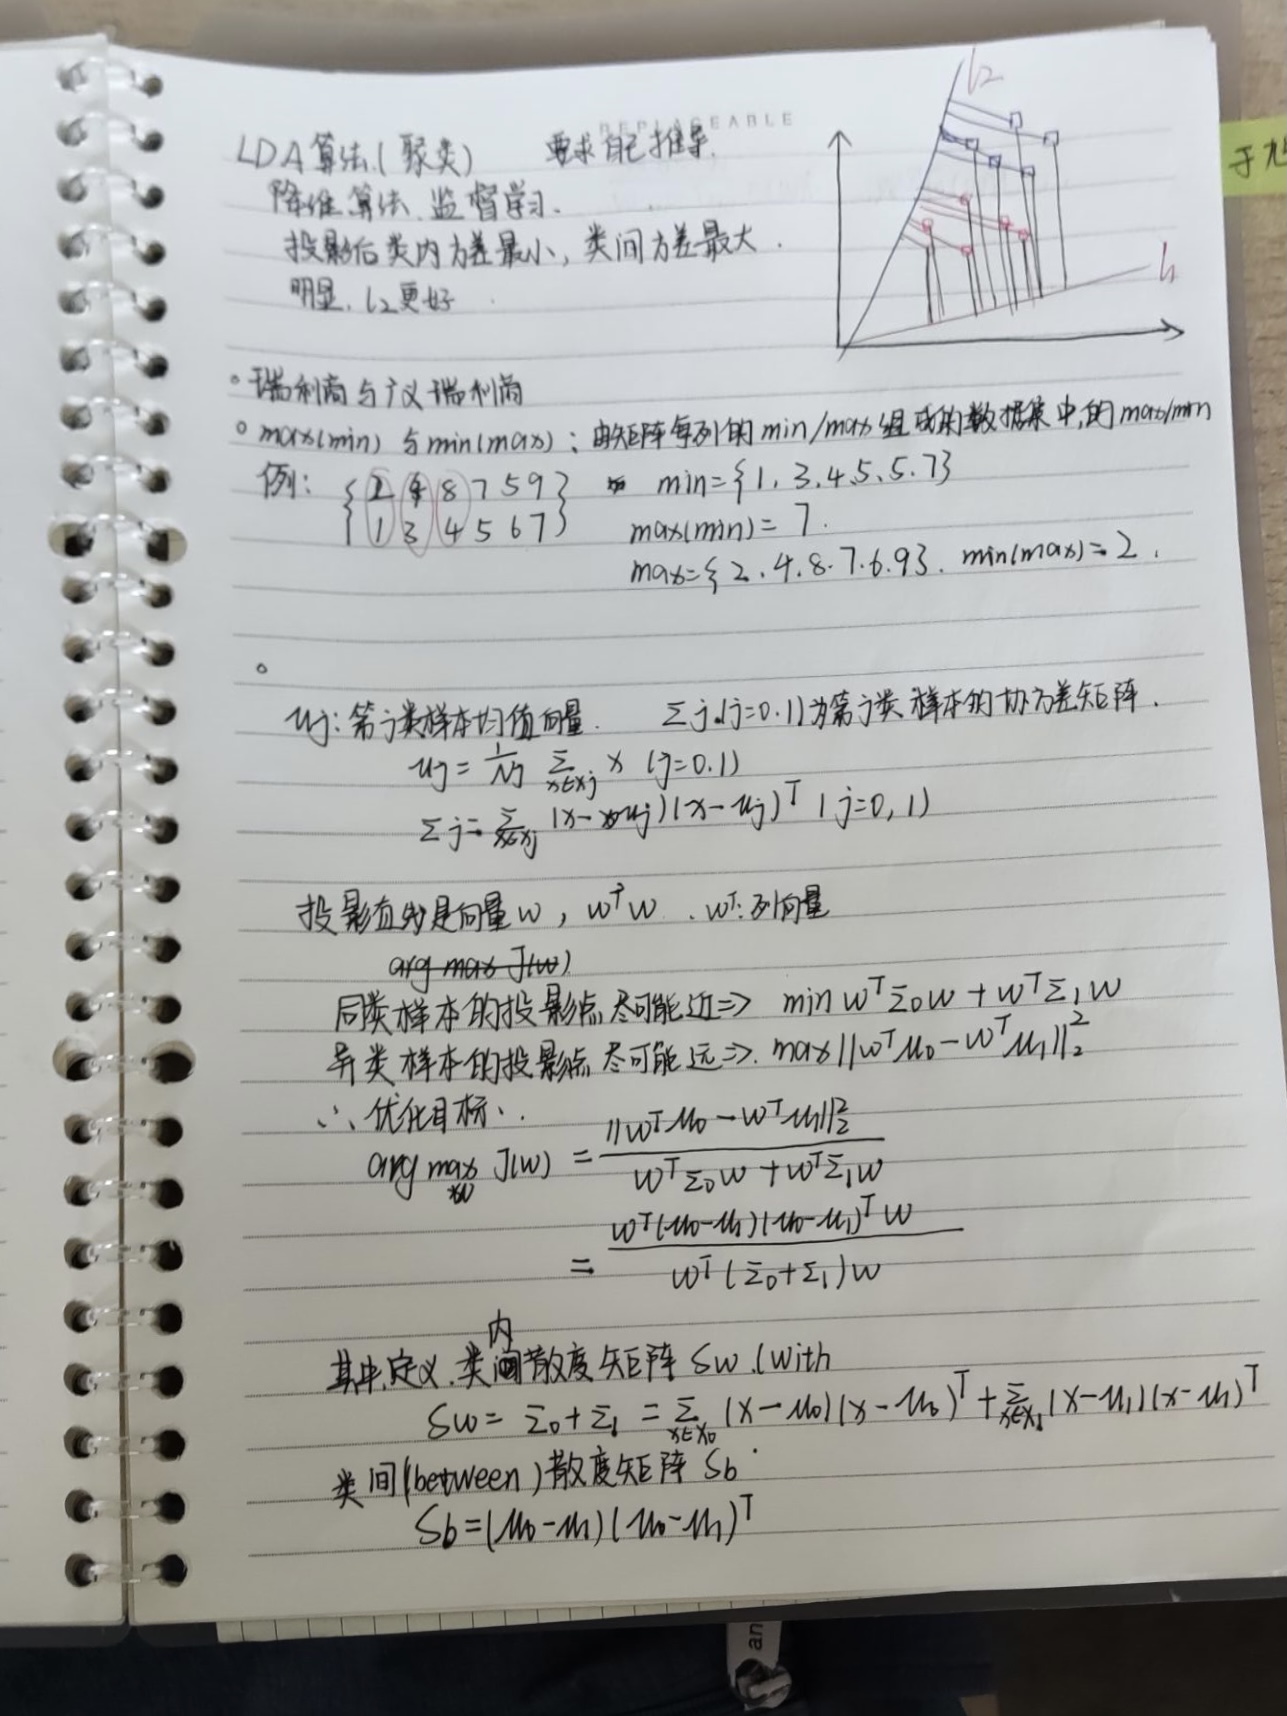 REPLACEABLE
LDA算法.(聚类) 要求自己推导.
降维算法.监督学习.
投影后类内方差最小,类间方差最大.
明显.l2更好.
l2
l1
于
。瑞利商与广义瑞利商
。max(min) 与 min(max):由矩阵每列的min/max组成的数据集中,的max/min
例: { 2 4 8 7 5 9 } min={1,3,4,5,5,7}
{ 1 3 4 5 6 7 } max(min)=7.
max={2,4,8,7,6,9}. min(max)=2.
。
μj:第j类样本均值向量. Σj.(j=0.1)为第j类样本的协方差矩阵.
μj = 1/Nj Σ_{x∈Xj} x (j=0.1)
Σj = Σ_{x∈Xj} (x-μj)(x-μj)^T (j=0,1)
投影直线是向量w, w^T w. w^T:列向量
arg max J(w)
同类样本的投影点尽可能近⇒ min w^TΣ0w + w^TΣ1w
异类样本的投影点尽可能远⇒. max||w^Tμ0 - w^Tμ1||_2^2
∴优化目标:.
arg max_w J(w) = ||w^Tμ0 - w^Tμ1||_2^2 / (w^TΣ0w + w^TΣ1w)
= w^T(μ0-μ1)(μ0-μ1)^T w / (w^T(Σ0+Σ1)w)
其中,定义.类内散度矩阵 Sw.(with
Sw = Σ0+Σ1 = Σ_{x∈X0} (x-μ0)(x-μ0)^T + Σ_{x∈X1} (x-μ1)(x-μ1)^T
类间(between)散度矩阵 Sb
Sb=(μ0-μ1)(μ0-μ1)^T
an